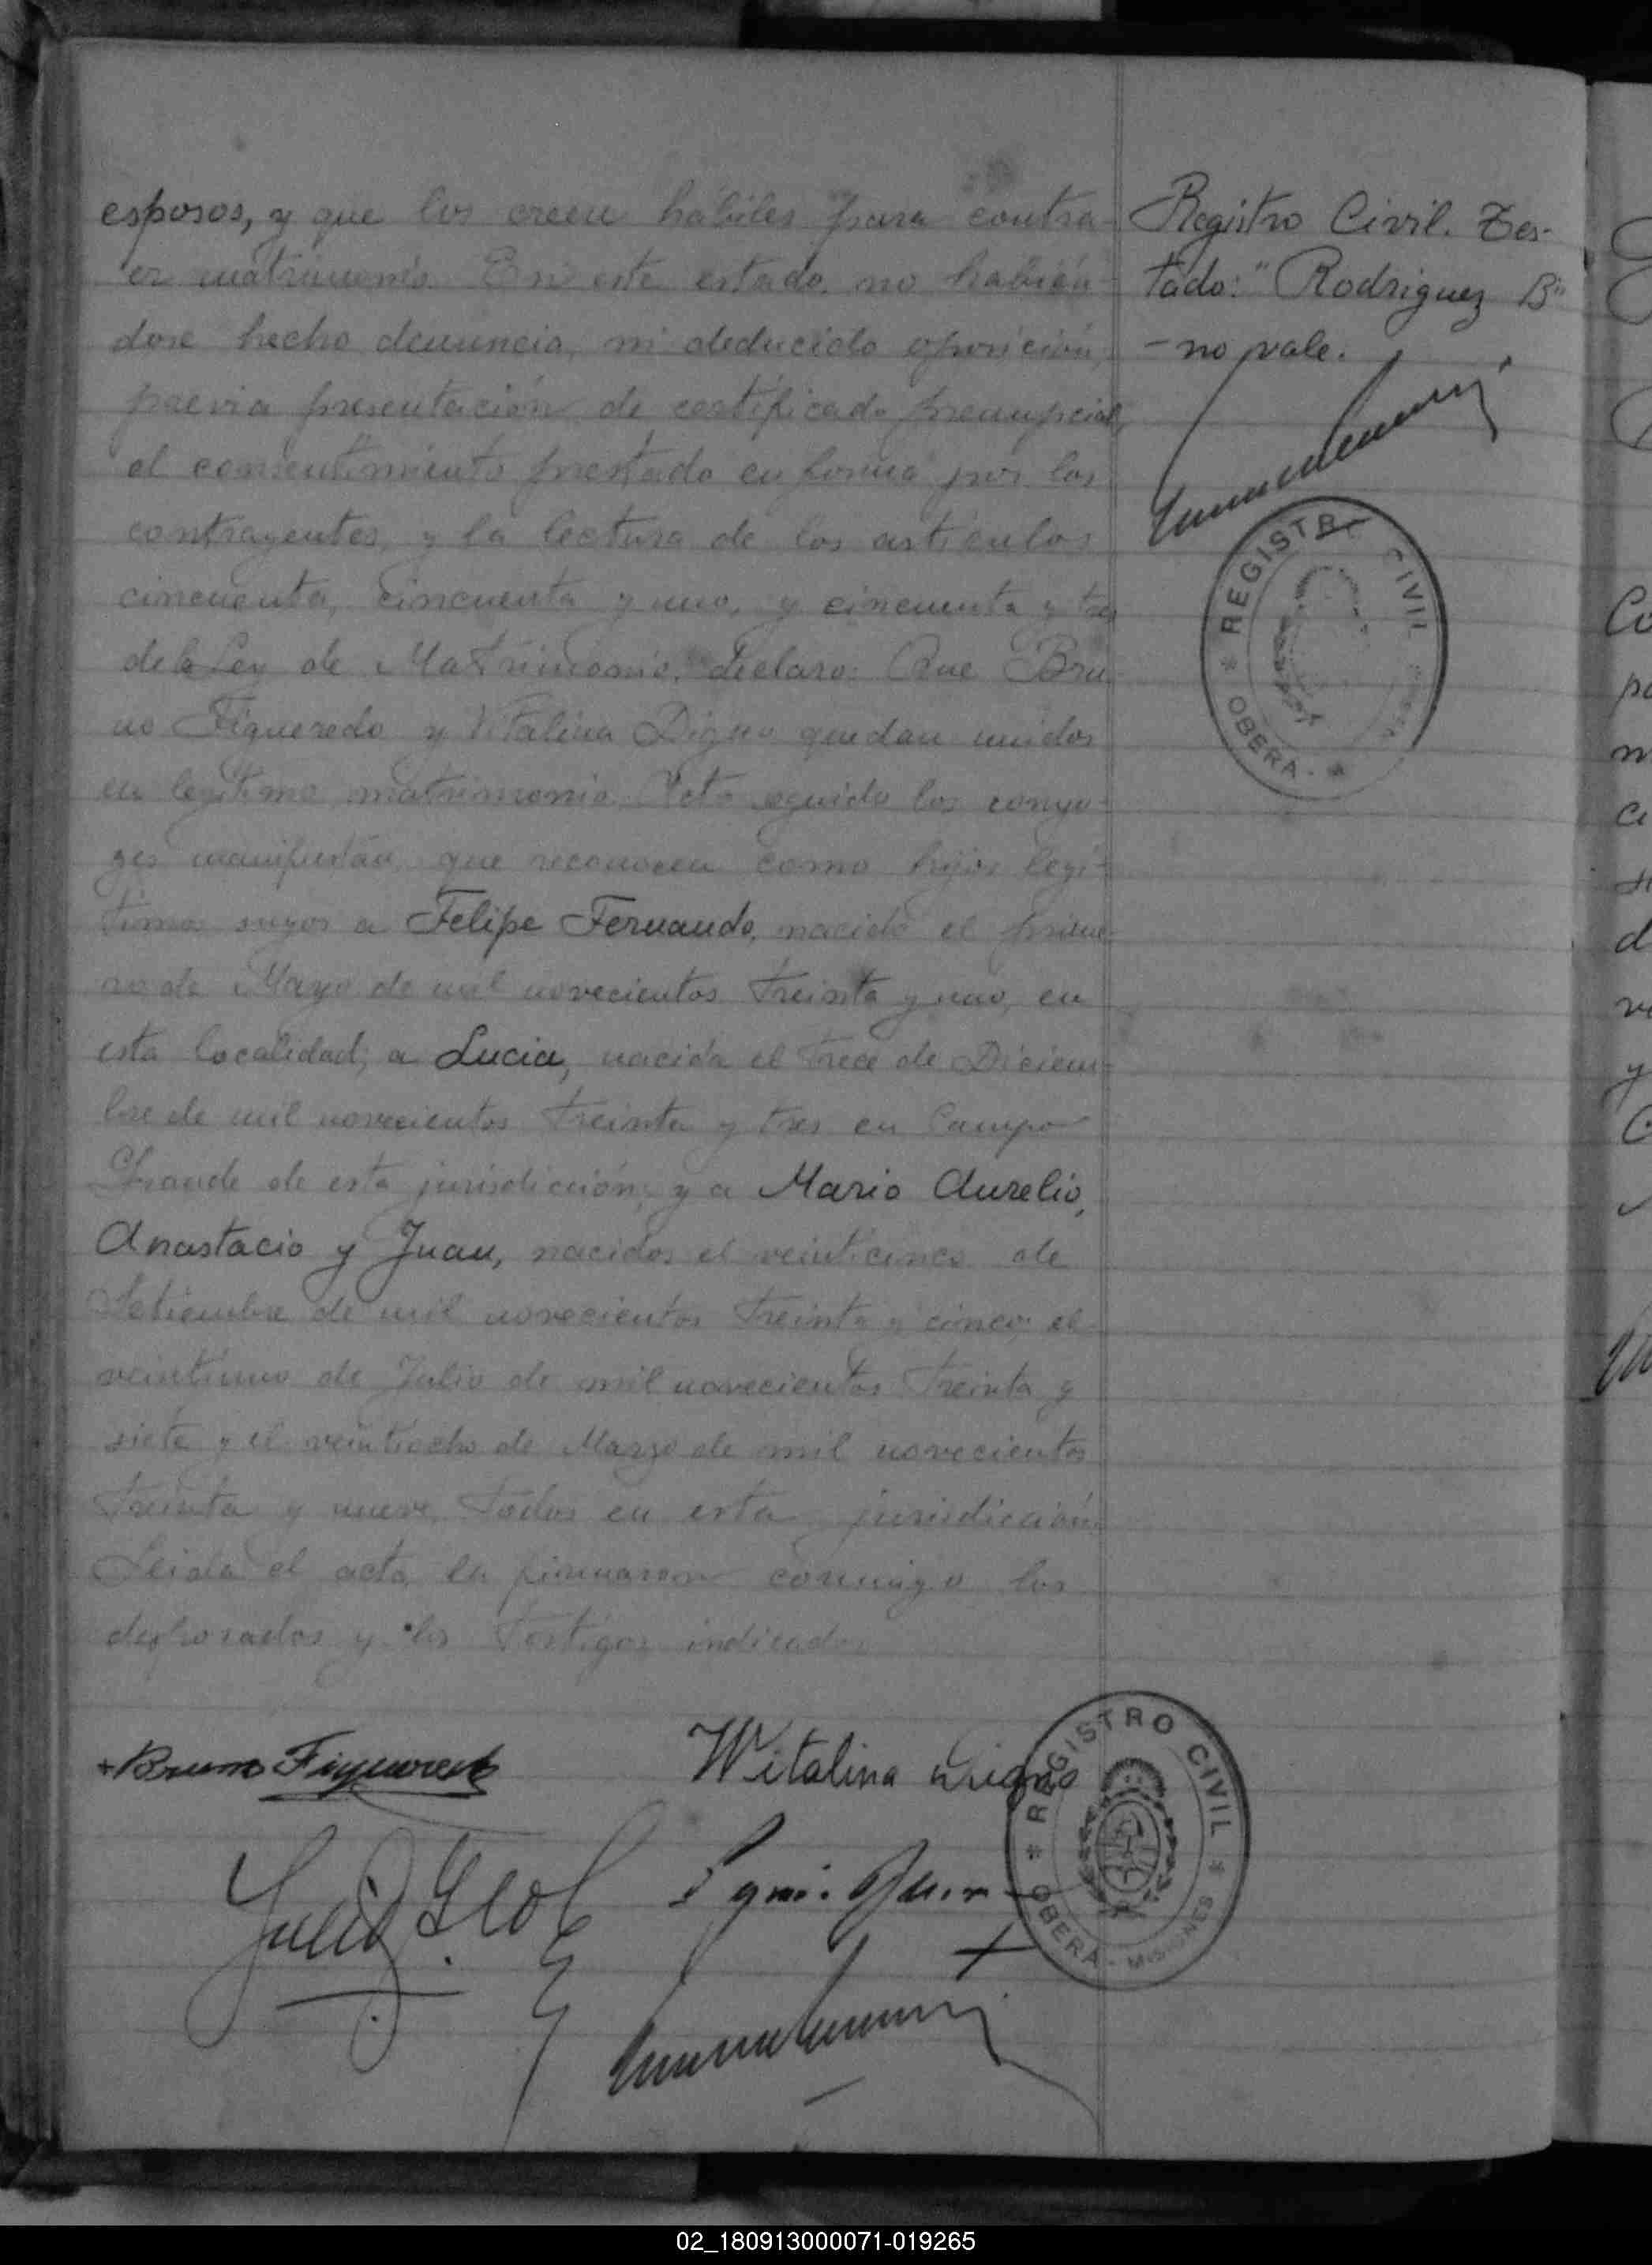 esposos, y que los creen hábiles para contra-
er matrimonio. En este estado, no habién-
dose hecho denuncia, ni deducido oposición,
previa presentación de certificado prenupcial,
el consentimiento prestado en forma por los
contrayentes, y la lectura de los artículos
cincuenta, cincuenta y uno, y cincuenta y tres
de la Ley de Matrimonio, declaro: Que Bru-
no Figueredo y Vitalina Digno quedan unidos
en legítimo matrimonio. Acto seguido los conyu-
ges manifiestan que reconocen como hijos legi-
timos suyos a Felipe Fernando, nacido el prime-
ro de Mayo de mil novecientos treinta y uno, en
esta localidad; a Lucia, nacida el trece de Diciem-
bre de mil novecientos treinta y tres en Campo
Grande de esta jurisdicción; y a Mario Aurelio,
Anastacio y Juan, nacidos el veinticinco de
Setiembre de mil novecientos treinta y cinco, el
veintiuno de Julio de mil novecientos treinta y
siete y el veintiocho de Marzo de mil novecientos
treinta y nueve, todos en esta jurisdicción.
Leida el acta, la firmaron conmigo los
desposados y los testigos indicados
Registro Civil. Tes-
tado: "Rodriguez B"
- no vale.
REGISTRO CIVIL
OBERA.
Bruno Figueredo
Witalina Digno
REGISTRO CIVIL
OBERA - MISIONES
02_180913000071-019265